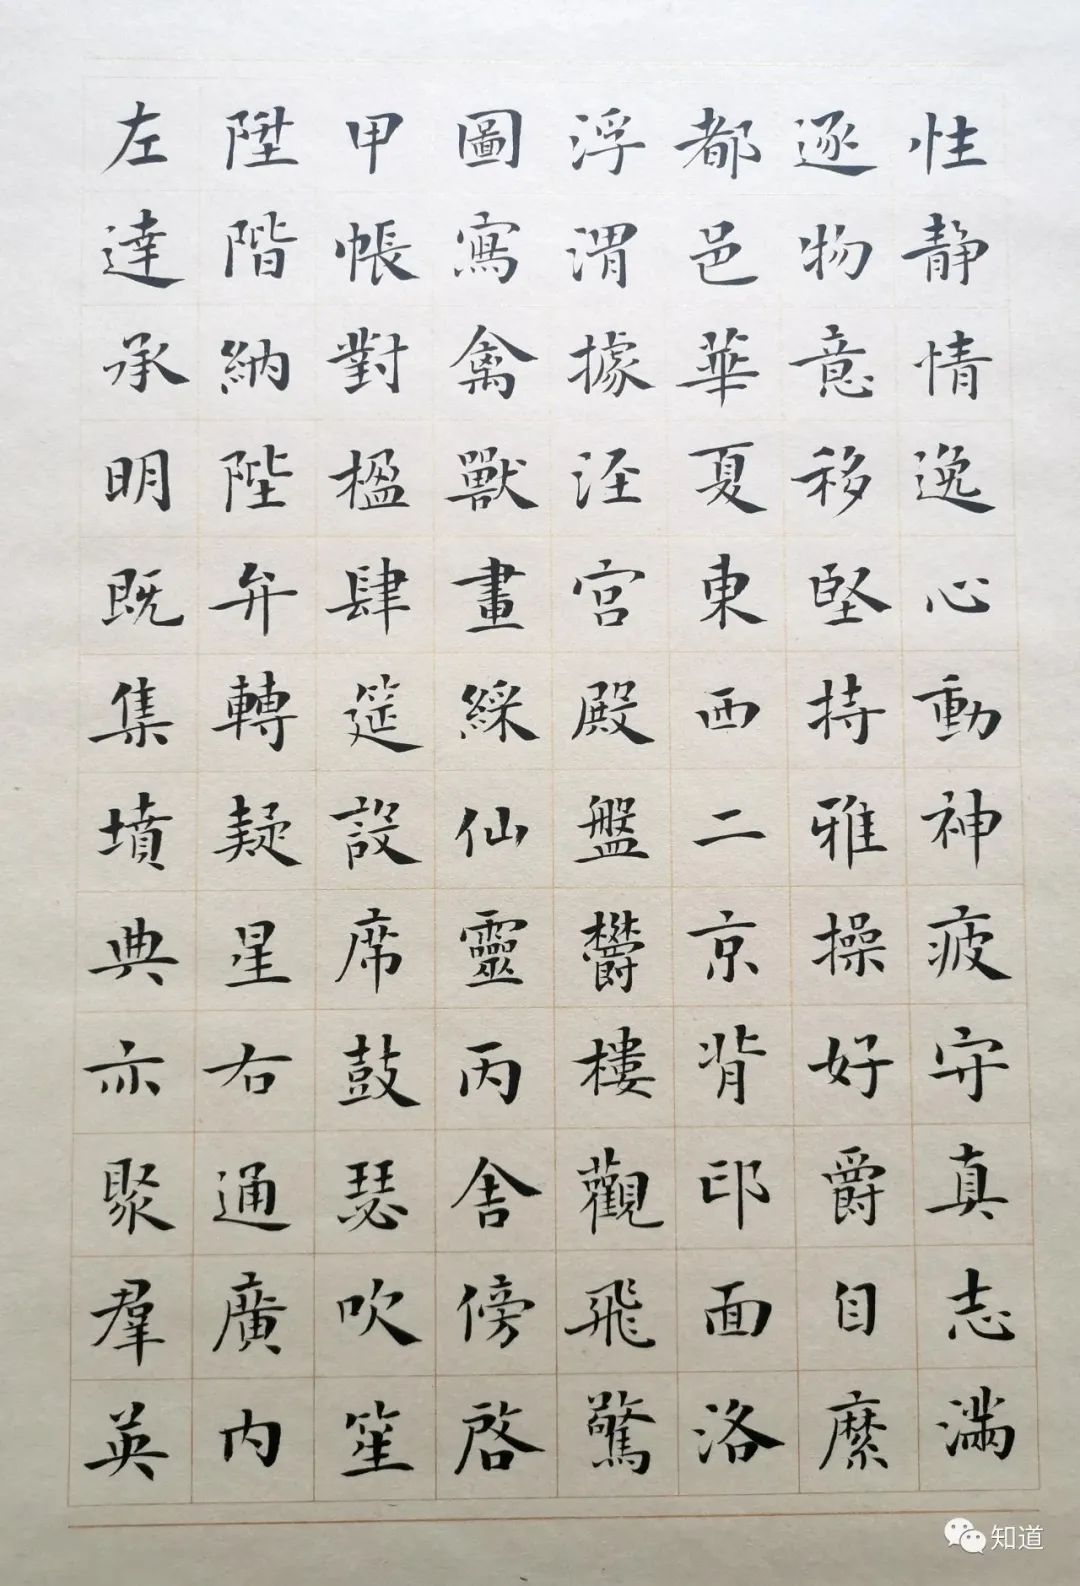 性靜情逸心動神疲守真志滿
逐物意移堅持雅操好爵自縻
都邑華夏東西二京背邙面洛
浮渭據涇宮殿盤鬱樓觀飛驚
圖寫禽獸畫綵仙靈丙舍傍啓
甲帳對楹肆筵設席鼓瑟吹笙
陞階納陛弁轉疑星右通廣内
左達承明既集墳典亦聚羣英
知道